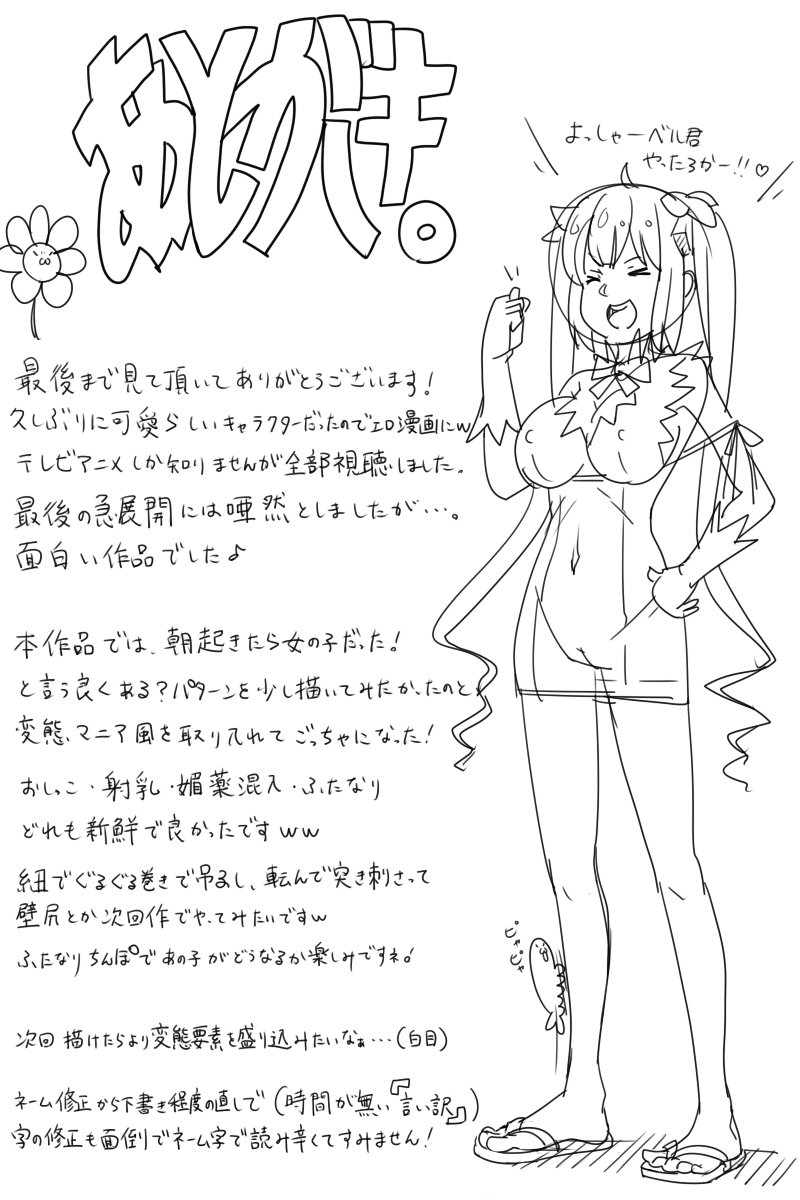 あとがき。
よっしゃーベル君
やったろかー!!♡
最後まで見て頂いてありがとうございます!
久しぶりに可愛らしいキャラクターだったのでエロ漫画にw
テレビアニメしか知りませんが全部視聴しました。
最後の急展開には唖然としましたが…。
面白い作品でした♪
本作品では、朝起きたら女の子だった!
と言う良くある?パターンを少し描いてみたかったのと、
変態マニア風を取り入れてごっちゃになった!
おしっこ・射乳・媚薬混入・ふたなり
どれも新鮮で良かったですww
紐でぐるぐる巻きで吊るし、転んで突き刺さって
壁尻とか次回作でやってみたいですw
ふたなりちんぽであの子がどうなるか楽しみですネ!
ピャピャ
次回描けたらより変態要素を盛り込みたいなぁ…(白目)
ネーム修正から下書き程度の直しで(時間が無い『言い訳』)
字の修正も面倒でネーム字で読み辛くてすみません!